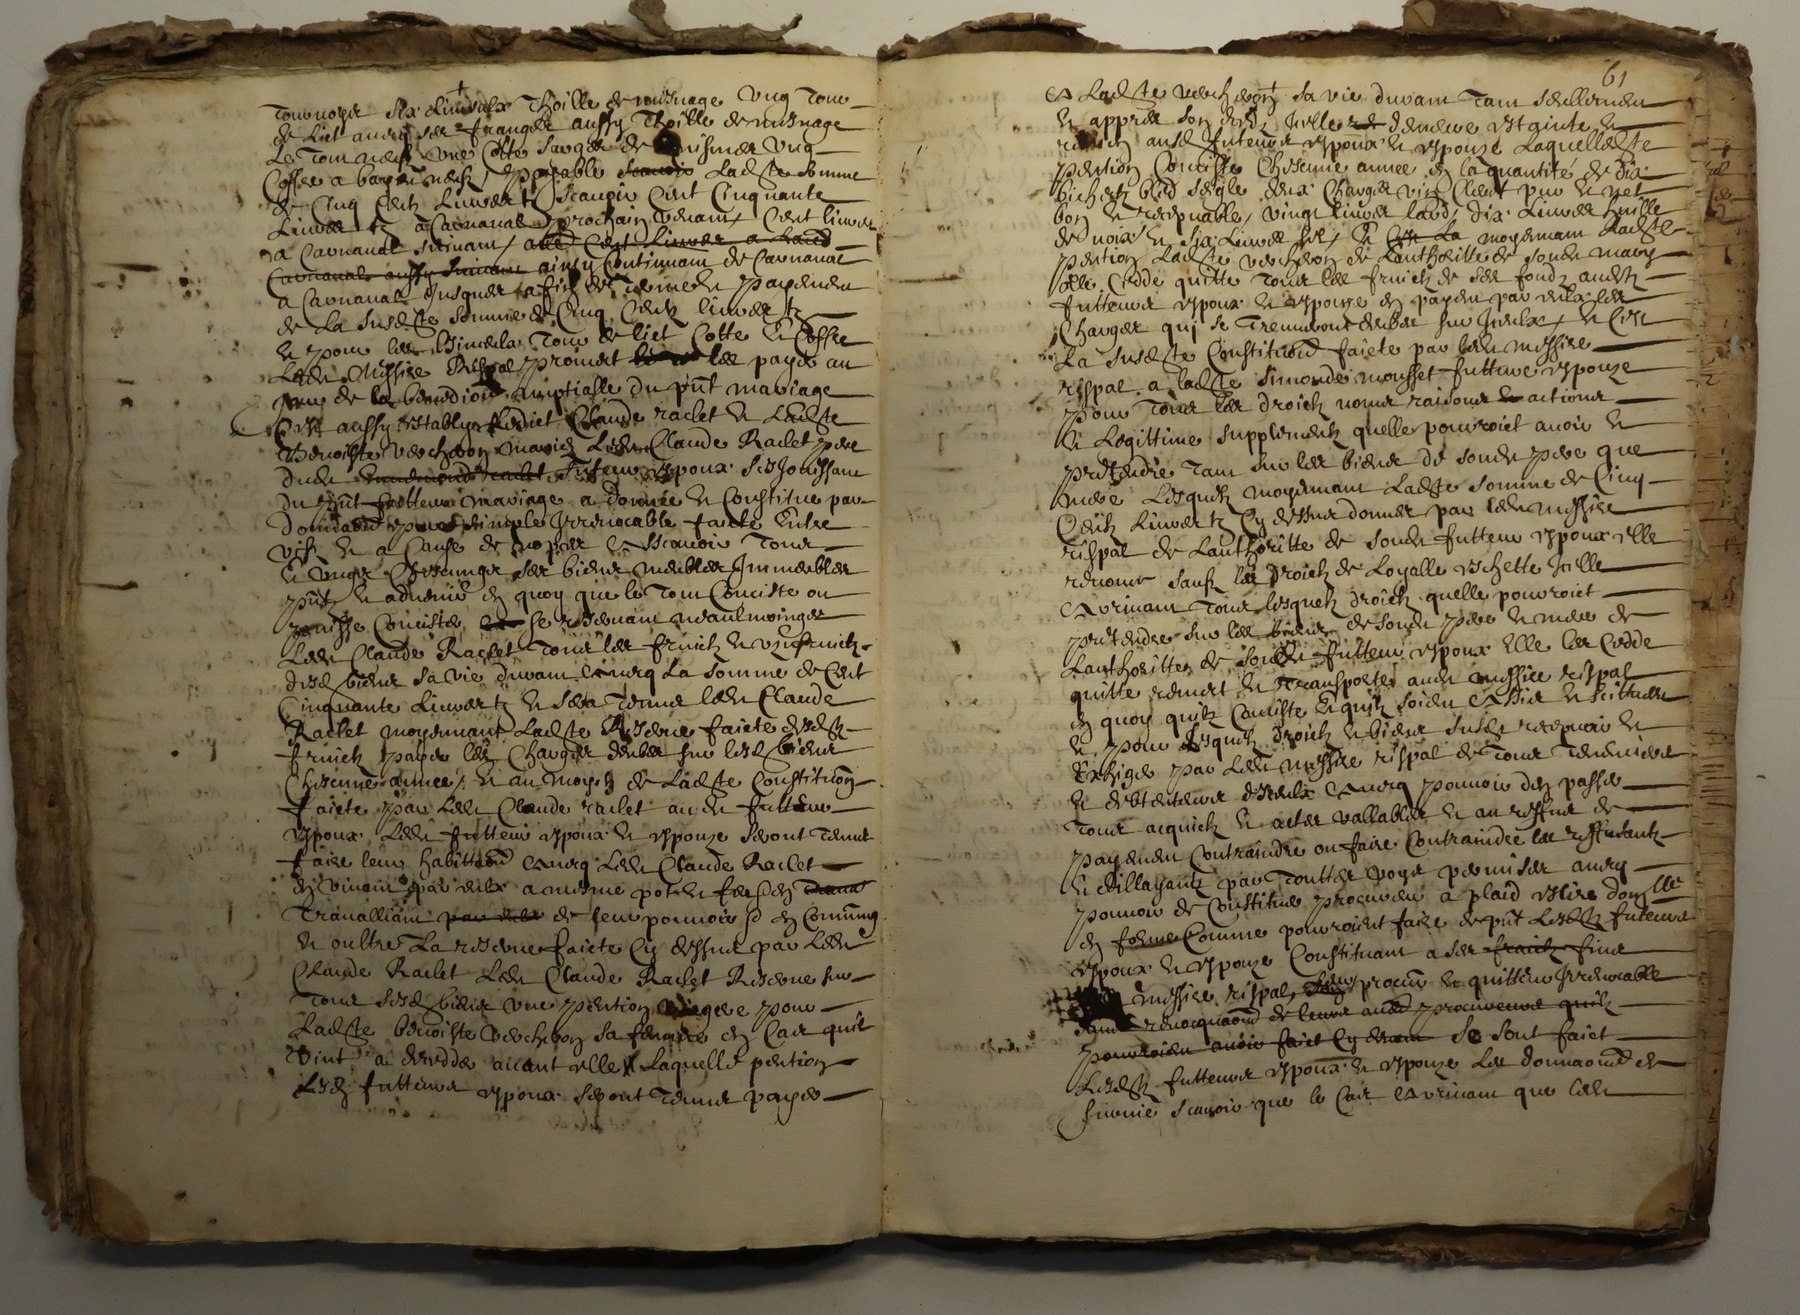 tournoyr six linceulx thoille de mesnage ung tour
de lict avecq ses franges aussy thoille de mesnage
le tout neuf une cotte sarges de ung
coffre a bayeu neuf, payable ladte somme
de cinq centz livres tz scavoir cent cinquante
livres tz a Carnaval prochain venant, cent livres
a carnaval suivant, aultres cent livres a
Carnaval aussy suivant ainsy continuant de Carnaval
a Carnaval jusques a fin de terme et payement
de la susdte somme de cinq centz livres tz
et pour les linceulx tour de lict cotte et coffre
ledit Messire Rispal promet les payer au
jour de la benediction nuptialle du pnt mariage
C'est aussy estably ledict Claude raclet et ladte
Benoiste vercheron mariez ledit Claude Raclet pere
dudit futeur espoux esjouissant
du pnt futteur mariage a donné et constitue par
donnaōn pure simple irrevocable faicte entre
vifz et a cause de nopces a scavoir tous
et ungs chescungs ses biens meubles immeubles
pntz et advenir en quoy que le tout conciste ou
puisse concister se reservant neaulmoinges
ledit Claude Raclet tous les fruictz et uzufruictz
desd biens sa vie durant avecq la somme de cent
cinquante livres tz et sera tenus ledit Claude
Raclet moyennant ladte reserve faicte desdtz
fruictz payer les charges deubes sur lesd biens
chescune annee, et au moyen de ladte constitution
faicte par ledit Claude raclet audit futteur
espoux lesdt futteur espoux et espouze seront tenus
faire leur habittaōn avecq ledit Claude Raclet
en vivant par eulx a mesme pot et feu en
travalliant par eulx de leur pouvoir en comung
et oultre la reserve faicte cy dessus par ledit
Claude Raclet ledit Claude Raclet reserve sur
tous sesd biens une pention viagere pour
ladte benoiste vercheron sa femme en cas quil
vint a decedder avant elle laquelle pention
lesd futteurs espoux seront tenus payer
61
a ladte vercheron sa vie durant tant seullement
et appres son decedz icelle demeure estainte et
ausd futeurs espoux et espouze laquelle dte
pention conciste chescune annee en la quantité de dix
bichetz bled seigle deux charges vin clert pur et net
bon et recepvable, vingt livres lard, dix livres huille
de noix et six livres sel, et moyennant ladte
pention ladte vercheron de lauthoritte de sondt mary
elle cedde quitte tous les fruictz de ses fondz ausdtz
futteurs espoux et espouze en payent par eulx les
charges qui se treuveront deubes sur iceulx, et c'est
la susdte constitutiōn faicte par ledit messire
rispal a ladte simonde mousset futture espouze
pour tous les droictz noms raisons et actions
et legittime supplementz quelle pourroict avoir et
pretendre tant sur les biens de sondt pere que
mere lesquelz moyennant ladte somme de cinq
centz livres tz cy dessus donnes par ledit messire
rispal de lauthoritte de sondt futteur espoux elle
renonce saufz les droictz de loyalle eschette icelle
advenant tous lesquelz droictz quelle pourroict
pretendre sur les biens de sondt pere et mere de
lauthoritte de sondt futteur espoux elle les cedde
quitte remet et transporte audit messire rispal
en quoy quilz conciste et quilz soient assis et scittues
et pour lesquelz droictz et biens susdtz recepvoir et
exhiger par ledit messire rispal de tous tenementiers
et debtenteurs diceulx avecq pouvoir den passer
tous acquictz et actes vallables et au reffus de
payement contraindre ou faire contraindre les reffusantz
et dillayantz par touttes voyes permises avecq
pouvoir de constituer procureur a plaid eslire domille
en forme comme pourroient faire de pnt lesdtz futeurs
espoux et espouze constituant a ses fins
messire rispal, leur procur et quitteur irrevocable
sans revocquaōn de leurs aultres procureurs quilz
pourroient avoir faict cy devant se sont faict
lesdtz futteurs espoux et espouze les donnaōns de
survie scavoir que le cas advenant que ledit